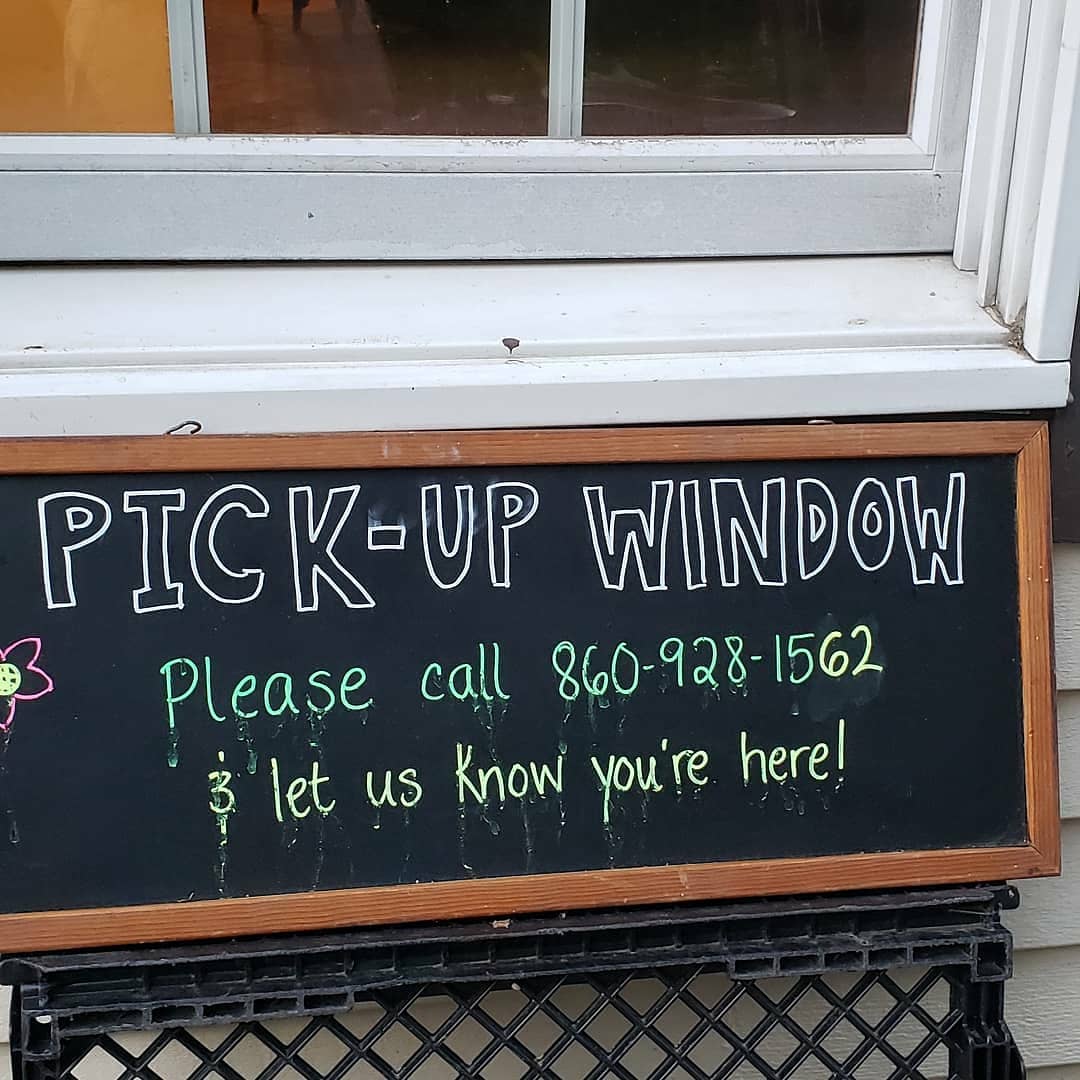 PICK-UP WINDOW
Please call 860-928-1562
& let us know you're here!